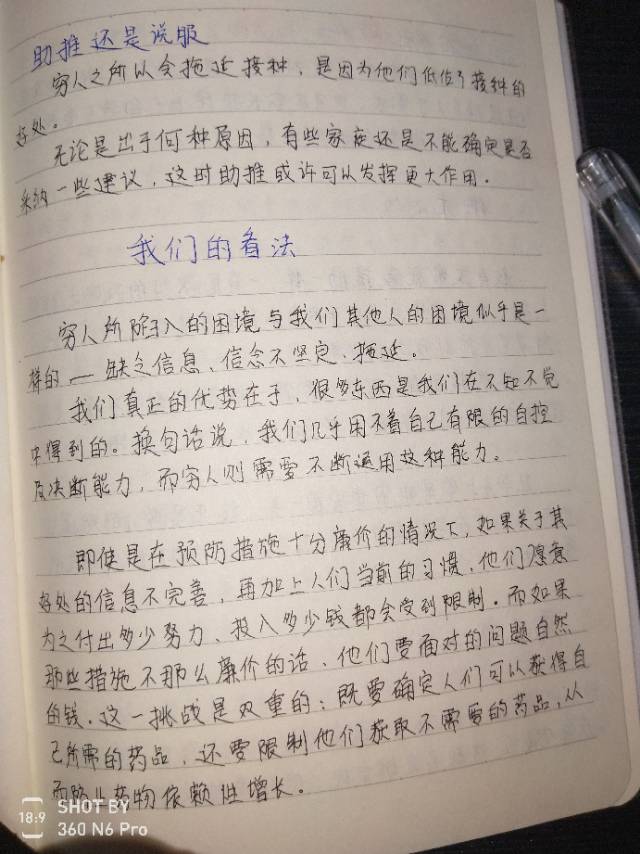 助推还是说服
穷人之所以会拖延接种，是因为他们低估了接种的
好处。
无论是出于何种原因，有些家庭还是不能确定是否
采纳一些建议，这时助推或许可以发挥更大作用.
我们的看法
穷人所陷入的困境与我们其他人的困境似乎是一
样的——缺乏信息、信念不坚定、拖延。
我们真正的优势在于，很多东西是我们在不知不觉
中得到的。换句话说，我们几乎用不着自己有限的自控
及决断能力，而穷人则需要不断运用这种能力。
即使是在预防措施十分廉价的情况下，如果关于其
好处的信息不完善，再加上人们当前的习惯，他们愿意
为之付出多少努力、投入多少钱都会受到限制.而如果
那些措施不那么廉价的话、他们要面对的问题自然
的钱.这一挑战是双重的：既要确定人们可以获得自
己所需的药品，还要限制他们获取不需要的药品，从
而防止药物依赖性增长。
18:9 SHOT BY
360 N6 Pro